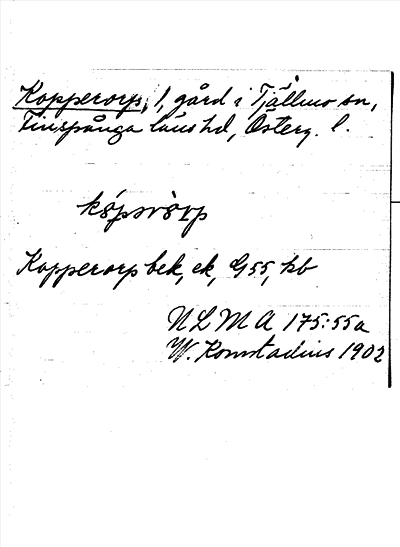 Kopperorp, 1, gård i Tjällmo sn,
Finspånga läns hd, Österg. l.
Kopperorp bek, ek, G55, kb
NLMA 175:55a
W. Konstadius 1902